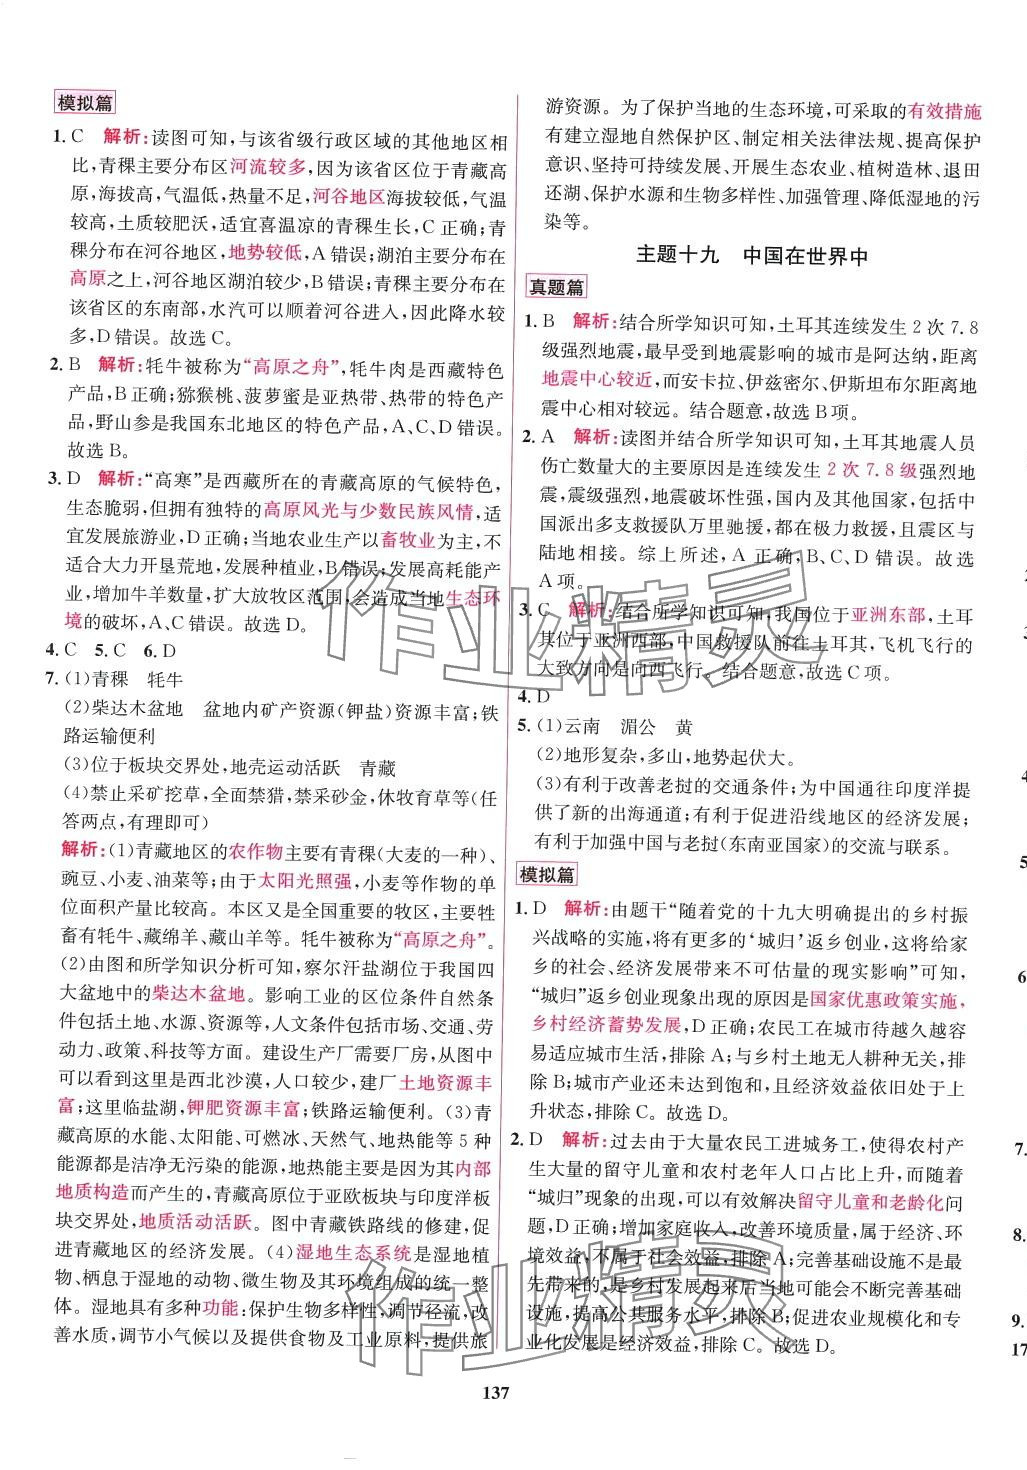 模拟篇
1. C 解析:读图可知,与该省级行政区域的其他地区相
比,青稞主要分布区河流较多,因为该省区位于青藏高
原,海拔高,气温低,热量不足,河谷地区海拔较低,气温
较高,土质较肥沃,适宜喜温凉的青稞生长,C正确;青
稞分布在河谷地区,地势较低,A错误;湖泊主要分布在
高原之上,河谷地区湖泊较少,B错误;青稞主要分布在
该省区的东南部,水汽可以顺着河谷进入,因此降水较
多,D错误。故选C。
2. B 解析:牦牛被称为“高原之舟”,牦牛肉是西藏特色
产品,B正确;猕猴桃、菠萝蜜是亚热带、热带的特色产
品,野山参是我国东北地区的特色产品,A、C、D错误。
故选B。
3. D 解析:“高寒”是西藏所在的青藏高原的气候特色,
生态脆弱,但拥有独特的高原风光与少数民族风情,适
宜发展旅游业,D正确;当地农业生产以畜牧业为主,不
适合大力开垦荒地,发展种植业,B错误;发展高耗能产
业,增加牛羊数量,扩大放牧区范围,会造成当地生态环
境的破坏,A、C错误。故选D。
4. C 5. C 6. D
7. (1)青稞 牦牛
(2)柴达木盆地 盆地内矿产资源(钾盐)资源丰富;铁
路运输便利
(3)位于板块交界处,地壳运动活跃 青藏
(4)禁止采矿挖草,全面禁猎,禁采砂金,休牧育草等(任
答两点,有理即可)
解析:(1)青藏地区的农作物主要有青稞(大麦的一种)、
豌豆、小麦、油菜等;由于太阳光照强,小麦等作物的单
位面积产量比较高。本区又是全国重要的牧区,主要牲
畜有牦牛、藏绵羊、藏山羊等。牦牛被称为“高原之舟”。
(2)由图和所学知识分析可知,察尔汗盐湖位于我国四
大盆地中的柴达木盆地。影响工业的区位条件自然条
件包括土地、水源、资源等,人文条件包括市场、交通、劳
动力、政策、科技等方面。建设生产厂需要厂房,从图中
可以看到这里是西北沙漠,人口较少,建厂土地资源丰
富;这里临盐湖,钾肥资源丰富;铁路运输便利。(3)青
藏高原的水能、太阳能、可燃冰、天然气、地热能等5种
能源都是洁净无污染的能源,地热能主要是因为其内部
地质构造而产生的,青藏高原位于亚欧板块与印度洋板
块交界处,地质活动活跃。图中青藏铁路线的修建,促
进青藏地区的经济发展。(4)湿地生态系统是湿地植
物、栖息于湿地的动物、微生物及其环境组成的统一整
体。湿地具有多种功能:保护生物多样性,调节径流,改
善水质,调节小气候以及提供食物及工业原料,提供旅
游资源。为了保护当地的生态环境,可采取的有效措施
有建立湿地自然保护区、制定相关法律法规、提高保护
意识、坚持可持续发展、开展生态农业、植树造林、退田
还湖、保护水源和生物多样性、加强管理、降低湿地的污
染等。
主题十九 中国在世界中
真题篇
1. B 解析:结合所学知识可知,土耳其连续发生2次7.8
级强烈地震,最早受到地震影响的城市是阿达纳,距离
地震中心较近,而安卡拉、伊兹密尔、伊斯坦布尔距离地
震中心相对较远。结合题意,故选B项。
2. A 解析:读图并结合所学知识可知,土耳其地震人员
伤亡数量大的主要原因是连续发生2次7.8级强烈地
震,震级强烈,地震破坏性强,国内及其他国家,包括中
国派出多支救援队万里驰援,都在极力救援,且震区与
陆地相接。综上所述,A正确,B、C、D错误。故选
A项。
3. C 解析:结合所学知识可知,我国位于亚洲东部,土耳
其位于亚洲西部,中国救援队前往土耳其,飞机飞行的
大致方向是向西飞行。结合题意,故选C项。
4. D
5. (1)云南 湄公 黄
(2)地形复杂,多山,地势起伏大。
(3)有利于改善老挝的交通条件;为中国通往印度洋提
供了新的出海通道;有利于促进沿线地区的经济发展;
有利于加强中国与老挝(东南亚国家)的交流与联系。
模拟篇
1. D 解析:由题干“随着党的十九大明确提出的乡村振
兴战略的实施,将有更多的‘城归’返乡创业,这将给家
乡的社会、经济发展带来不可估量的现实影响”可知,
“城归”返乡创业现象出现的原因是国家优惠政策实施,
乡村经济蓄势发展,D正确;农民工在城市待越久越容
易适应城市生活,排除A;与乡村土地无人耕种无关,排
除B;城市产业还未达到饱和,且经济效益依旧处于上
升状态,排除C。故选D。
2. D 解析:过去由于大量农民工进城务工,使得农村产
生大量的留守儿童和农村老年人口占比上升,而随着
“城归”现象的出现,可以有效解决留守儿童和老龄化问
题,D正确;增加家庭收入,改善环境质量,属于经济、环
境效益,不属于社会效益,排除A;完善基础设施不是最
先带来的,是乡村发展起来后当地可能会不断完善基础
设施,提高公共服务水平,排除B;促进农业规模化和专
业化发展是经济效益,排除C。故选D。
137
作业精灵
作业精灵
4
5.
6
7.
8.
9.
17